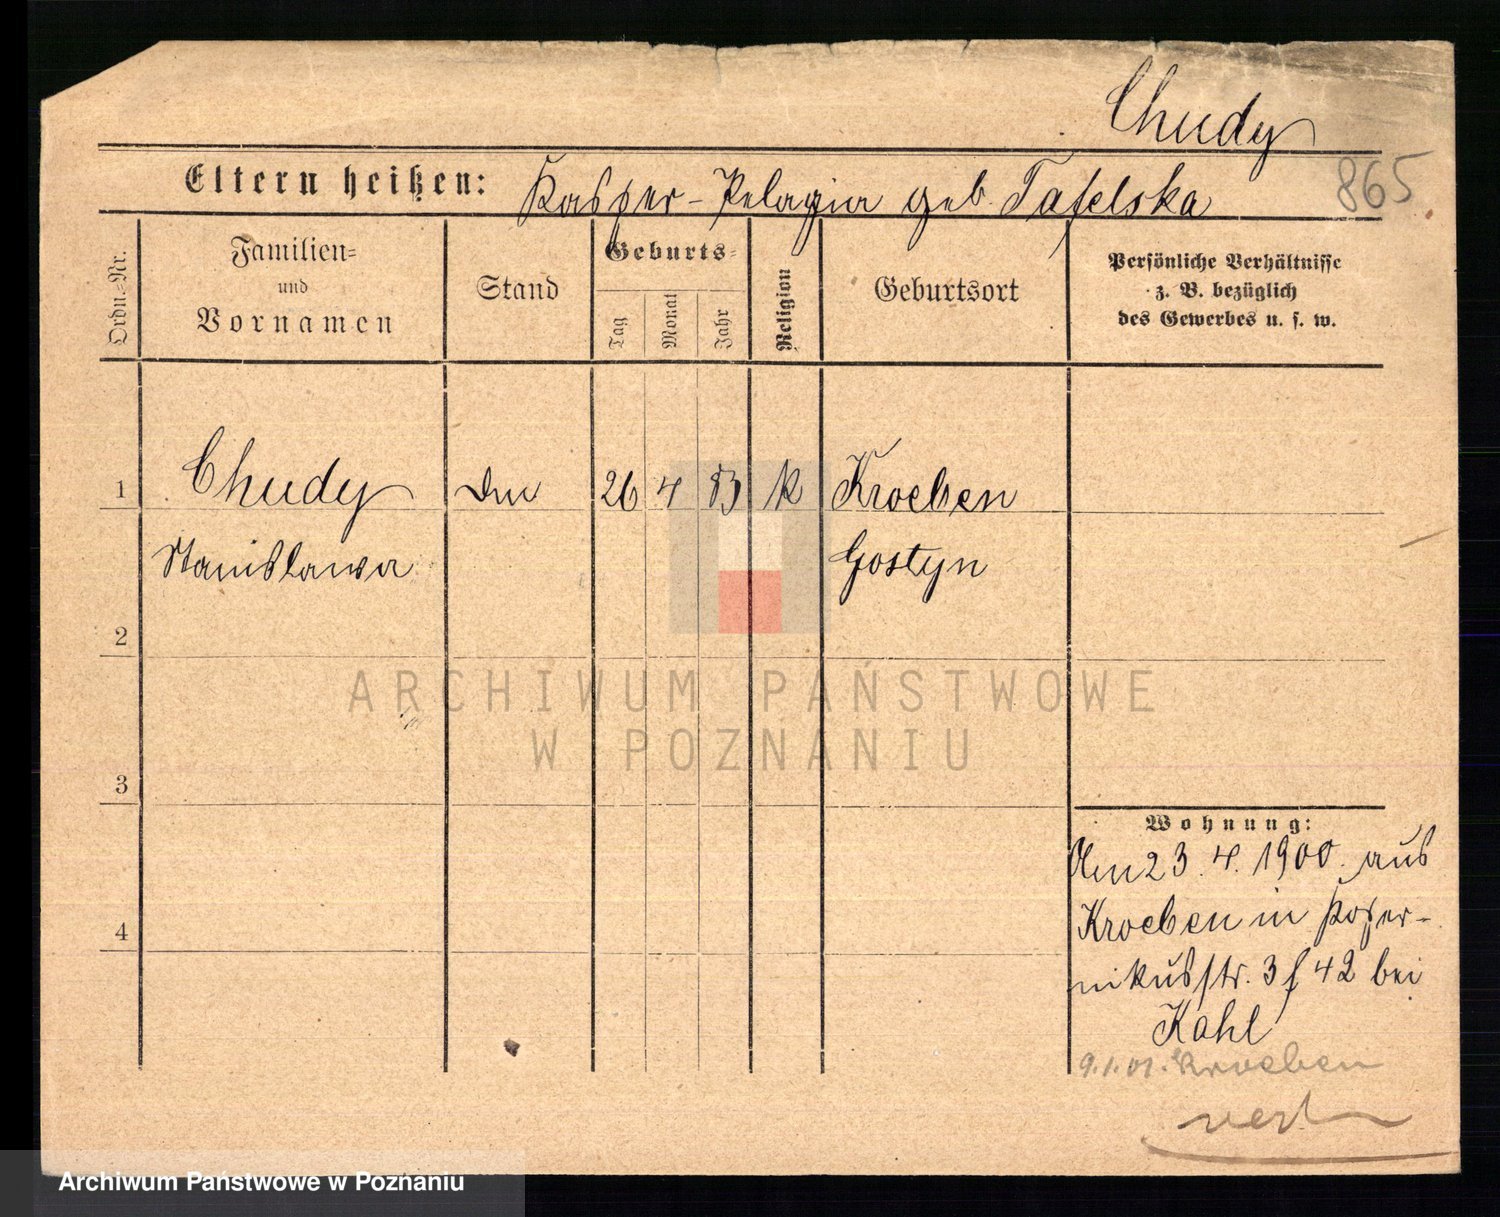 Chudy
865
Eltern heißen: Kasper - Pelagia geb. Tafelska
Ordn.=Nr.
Familien=
und
Vornamen
Stand
Geburts=
Tag
Monat
Jahr
Religion
Geburtsort
Persönliche Verhältnisse
z. B. bezüglich
des Gewerbes u. s. w.
1 Chudy 26 4 83 k Kroeben
Stanislawa Gostyn
2
3
4
Wohnung:
Am 23. 4. 1900. aus
Kroeben in Koper-
nikusstr. 3 f 42 bei
Kahl
9.1.01. Kroeben
ARCHIWUM PAŃSTWOWE
W POZNANIU
Archiwum Państwowe w Poznaniu